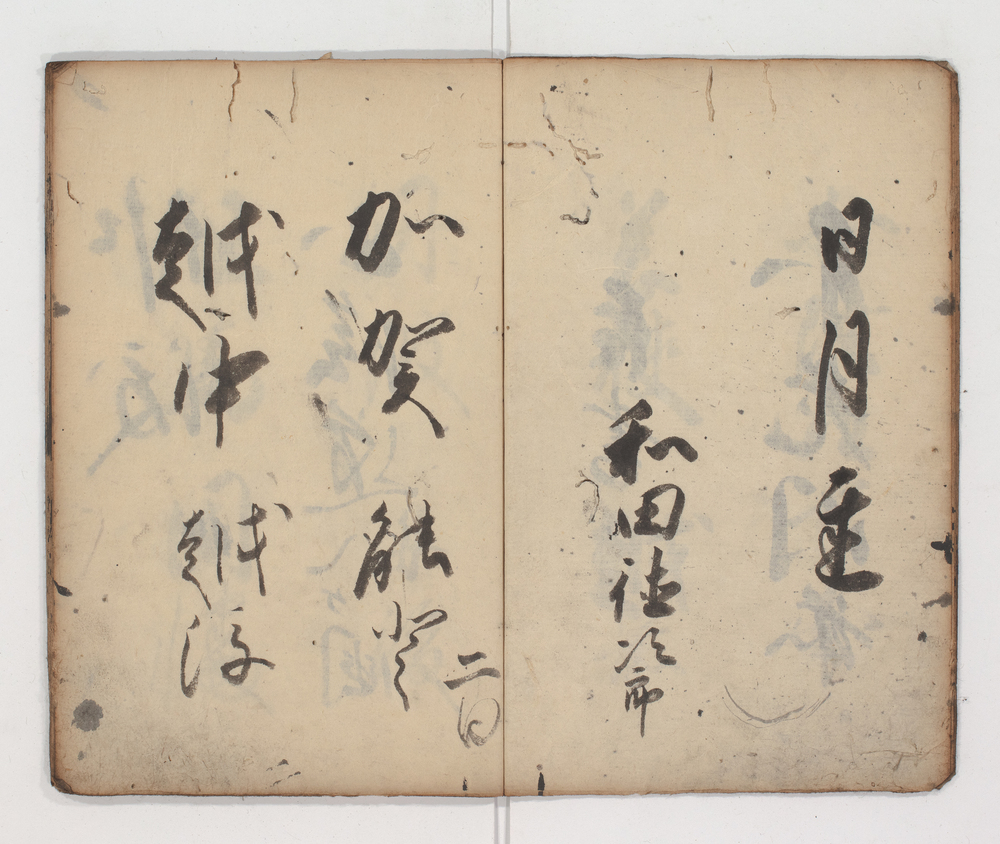 日月
和田徳次郎
加賀 能登
二日
越中 越後